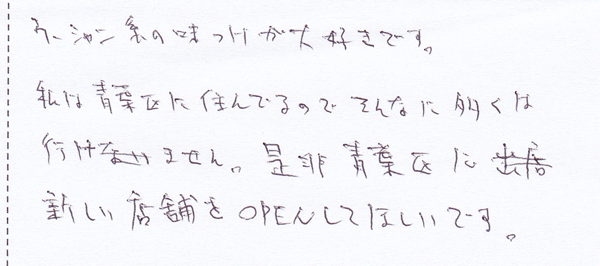 ラーシャン系の味つけが大好きです。
私は青葉区に住んでるのでそんなに多くは
行けません。是非青葉区に
新しい店舗をOPENしてほしいです。